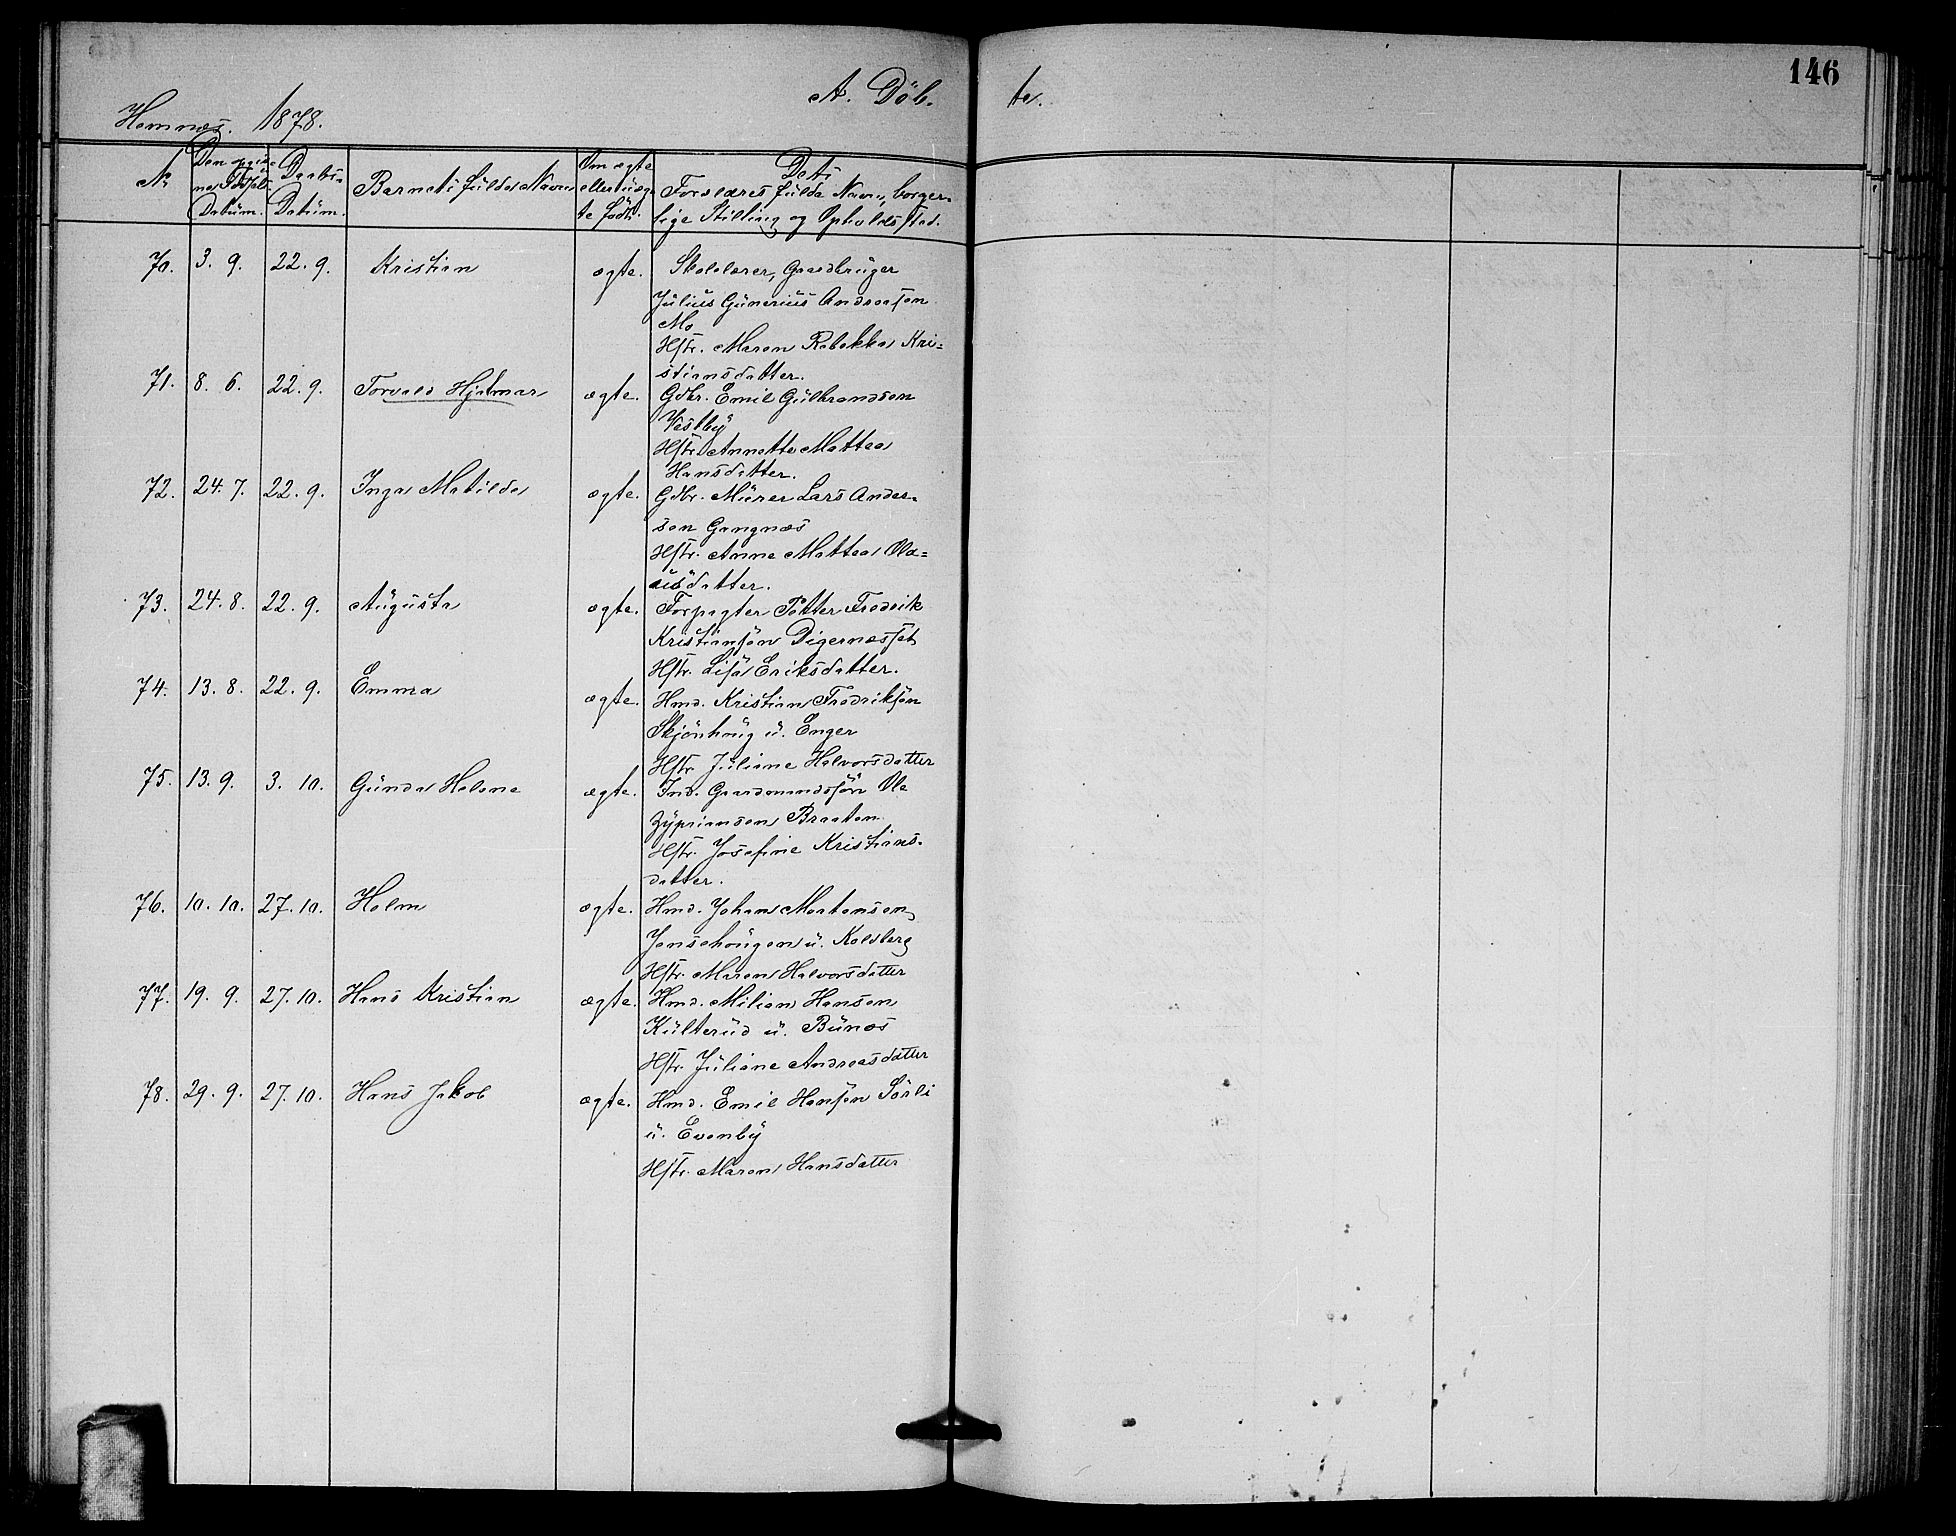 146
A. Döb- te.
Hemnæs. 1878.
No
Den opgiv-
ne Födsels-
Datüm.
Daabs-
Datüm.
Barnets fülde Navn
Om ægte
eller üæg-
te födt.
Dets
Forældres fülde Navn, borger-
lige Stilling og Opholdssted.
70. 3. 9. 22. 9. Kristian ægte. Skolelærer, Gaardbrüger
Jülius Günerius Andreasen
Mo
Hstr. Maren Rebekka Kri-
stiansdatter.
71. 8. 6. 22. 9. Torvald Hjalmar ægte. Gdbr. Emil Gülbrandsen
Vestby
Hstr. Annette Mattea
Hansdatter.
72. 24. 7. 22. 9. Inga Matilde ægte. Gdbr. Mürer Lars Ander-
sen Gangnæs
Hstr. Anne Mattea Ola-
üsdatter.
73. 24. 8. 22. 9. Aügusta ægte. Forpagter Petter Fredrik
Kristiansen Digernæsset
Hstr. Lisa Eriksdatter.
74. 13. 8. 22. 9. Emma ægte. Hmd. Kristian Fredriksen
Skjönhaüg ü. Enger
Hstr. Jüliane Halvorsdatter
75. 13. 9. 3. 10. Günda Helene ægte. Ind. Gaardmandssön Ole
Zypriansen Braaten
Hstr. Josefine Kristians-
datter.
76. 10. 10. 27. 10. Holm ægte. Hmd. Johan Martensen
Jensehaügen ü. Kolsberg
Hstr. Maren Halvorsdatter
77. 19. 9. 27. 10. Hans Kristian ægte. Hmd. Milian Hansen
Külterüd ü. Bünæs
Hstr. Jüliane Andreasdatter
78. 29. 9. 27. 10. Hans Jakob ægte. Hmd. Emil Hansen Sörli
ü. Evenby
Hstr. Maren Hansdatter